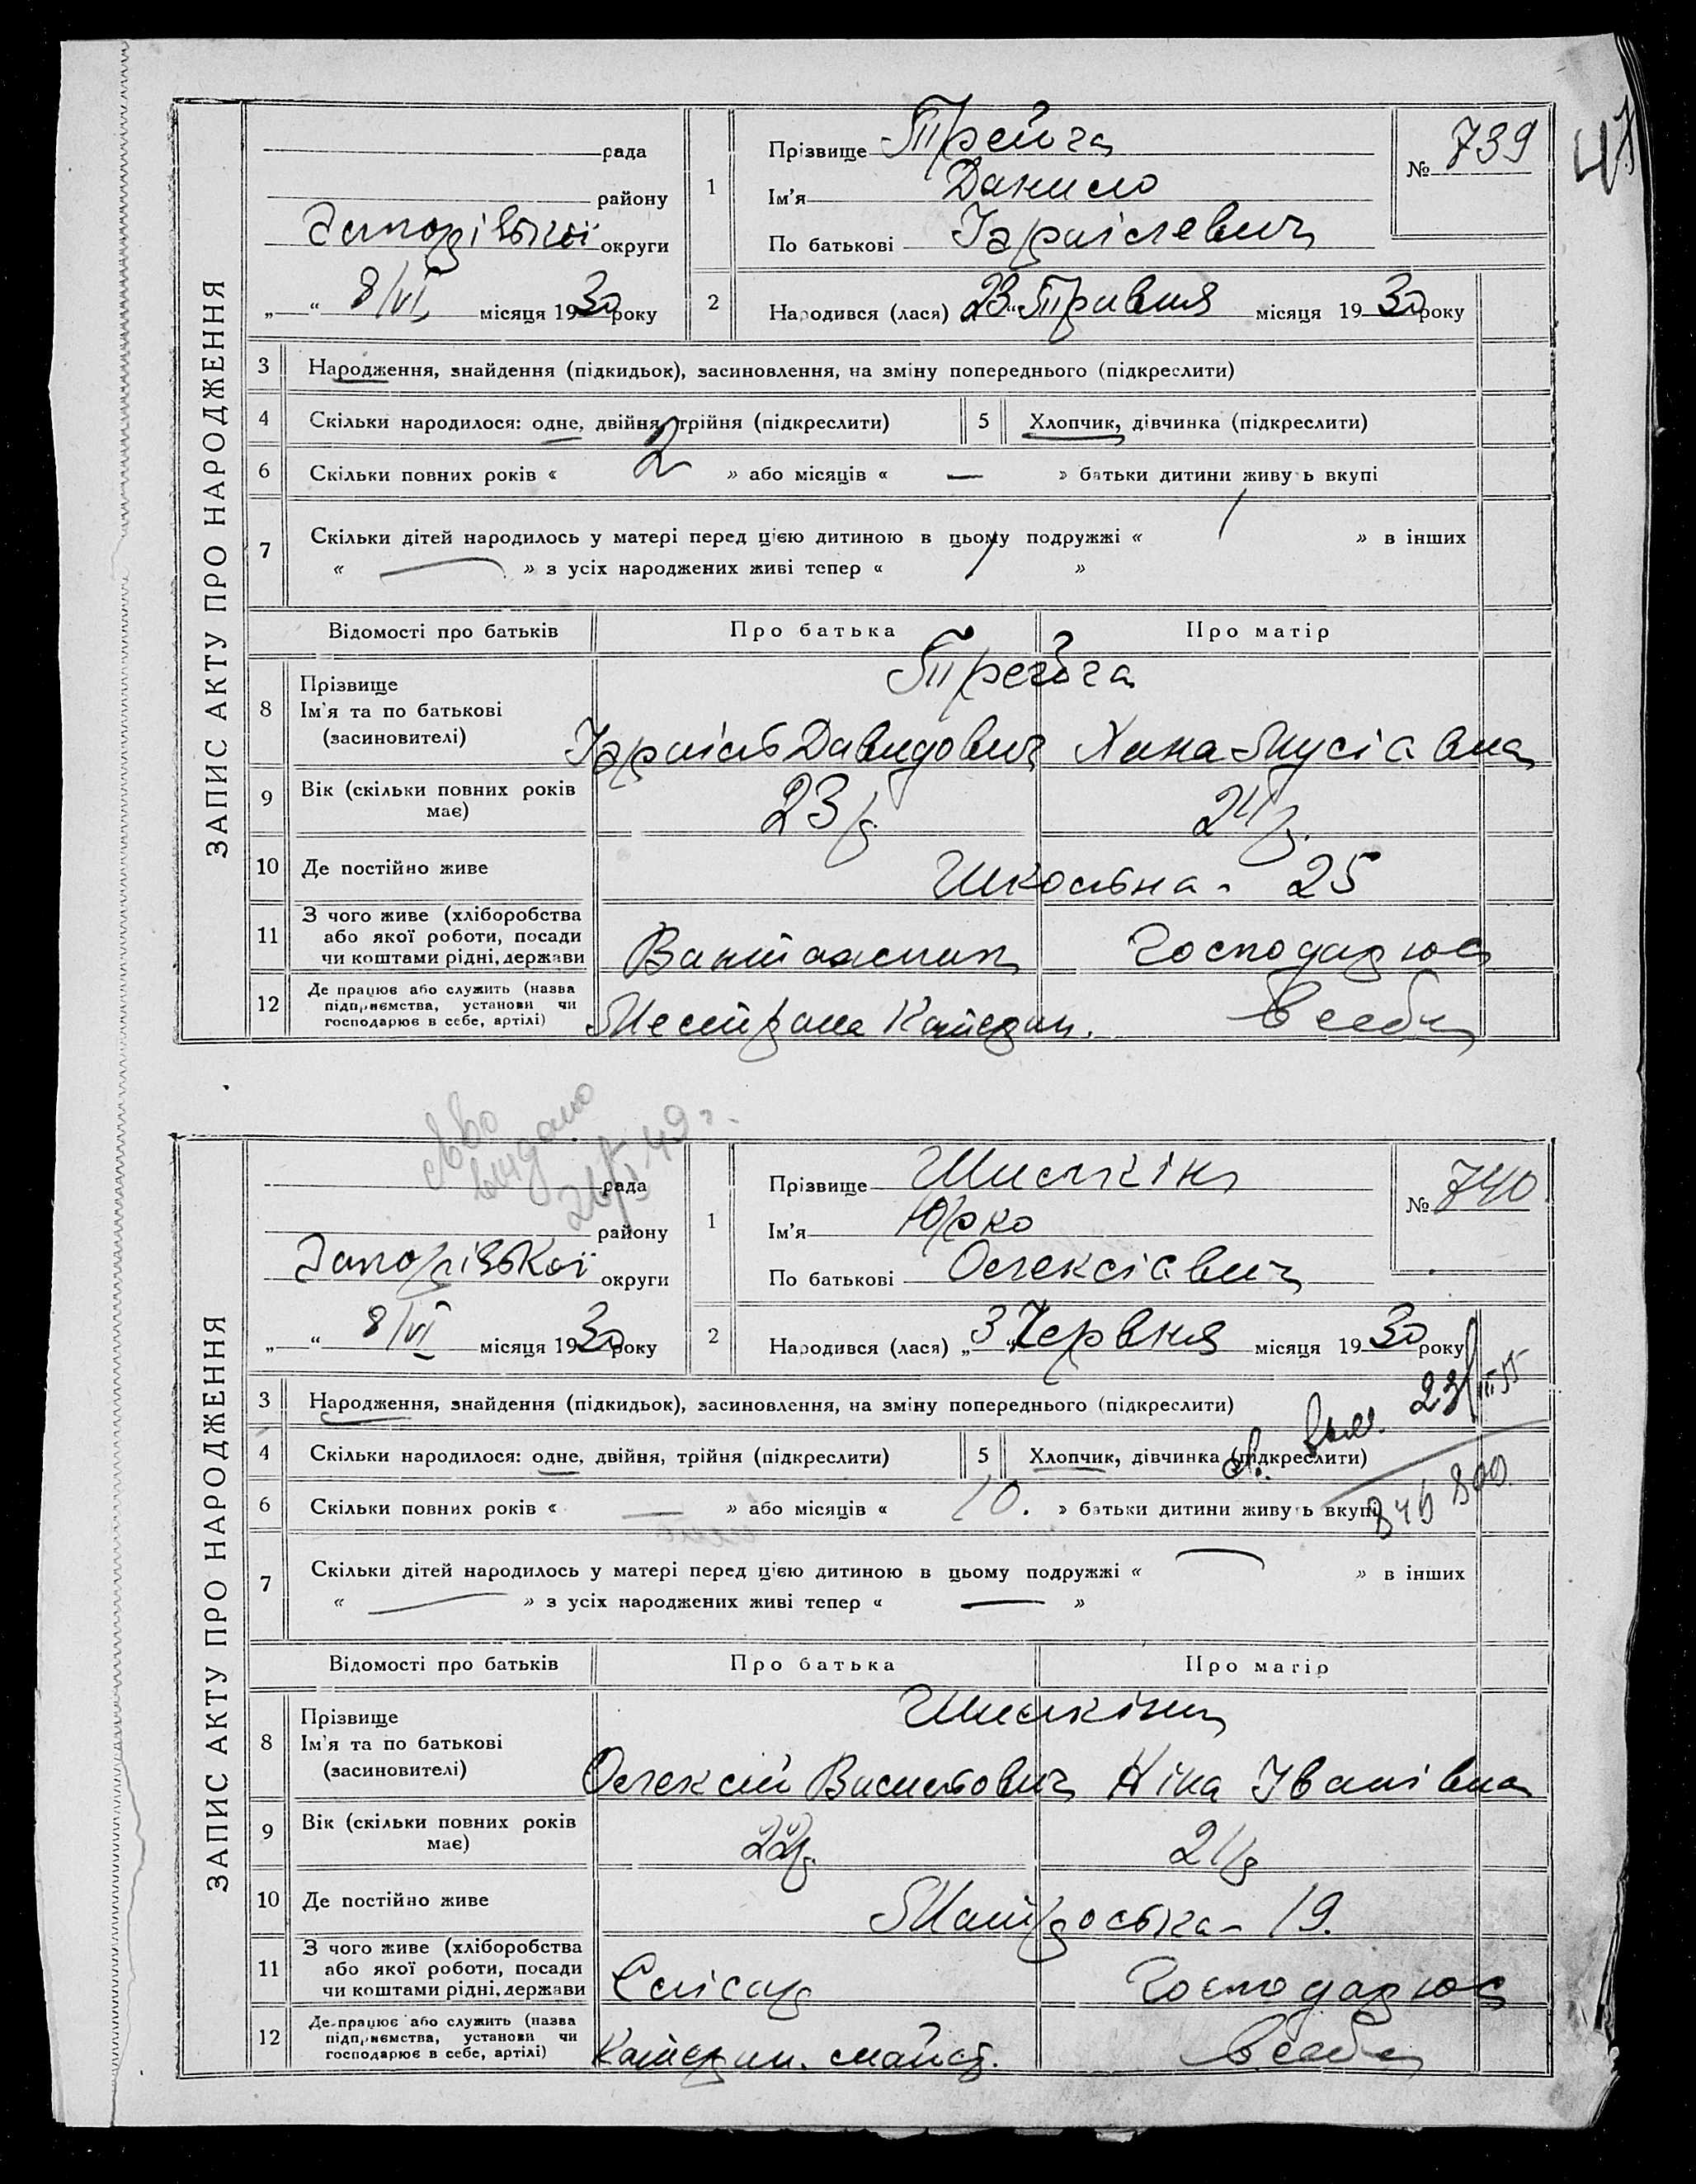 ЗАПИС АКТУ ПРО НАРОДЖЕННЯ
рада
району
Запорізької округи
„ “ 8/VI місяця 1930 року
1
Прізвище Трейга
Ім'я Данило
По батькові Ізраілевич
№ 739
47
2
Народився (лася) 23 Травня місяця 1930 року
3 Народження, знайдення (підкидьок), засиновлення, на зміну попереднього (підкреслити)
4 Скільки народилося: одне, двійня, трійня (підкреслити) 5 Хлопчик, дівчинка (підкреслити)
6 Скільки повних років « 2 » або місяців « — » батьки дитини живуть вкупі
7 Скільки дітей народилось у матері перед цією дитиною в цьому подружжі « 1 » в інших
« — » з усіх народжених живі тепер « 1 »
Відомості про батьків Про батька Про матір
8 Прізвище
Ім'я та по батькові
(засиновителі)
Трейга
Ізраіль Давидович Хана
9 Вік (скільки повних років має) 23 р. 24 р.
10 Де постійно живе Школьна - 25
11 З чого живе (хліборобства або якої роботи, посади чи коштами рідні, держави Вантажник Господарює
12 Де працює або служить (назва підприємства, установи чи господарює в себе, артілі) Катерин. в себе
видано
49 г.
ЗАПИС АКТУ ПРО НАРОДЖЕННЯ
рада
району
Запорізької округи
„ “ 8/VI місяця 1930 року
1
Прізвище Шишкін
Ім'я Юрко
По батькові Олексієвич
№ 740
2
Народився (лася) „3“ Червня місяця 1930 року
23/III 55
3 Народження, знайдення (підкидьок), засиновлення, на зміну попереднього (підкреслити)
4 Скільки народилося: одне, двійня, трійня (підкреслити) 5 Хлопчик, дівчинка (підкреслити)
6 Скільки повних років « — » або місяців « 10. » батьки дитини живуть вкупі
7 Скільки дітей народилось у матері перед цією дитиною в цьому подружжі « — » в інших
« — » з усіх народжених живі тепер « — »
Відомості про батьків Про батька Про матір
8 Прізвище
Ім'я та по батькові
(засиновителі)
Шишкіни
Олексій Васильович Ніна Іванівна
9 Вік (скільки повних років має) 22 р. 21 р.
10 Де постійно живе Матроська - 19.
11 З чого живе (хліборобства або якої роботи, посади чи коштами рідні, держави Слюсар Господарює
12 Де працює або служить (назва підприємства, установи чи господарює в себе, артілі) Катерин. майст. в себе